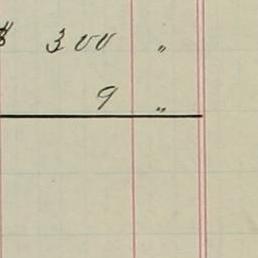 $ 300 "
9 "